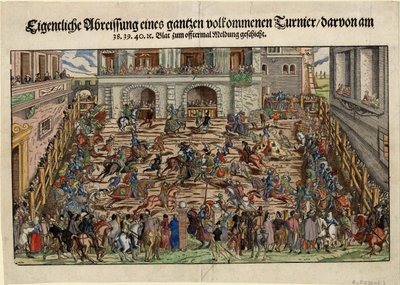 Eigentliche Abreissung eines gantzen volkommenen Turnier/darvon am
38. 39. 40. ꝛc. Blat zum offtermal Meldung geschicht.